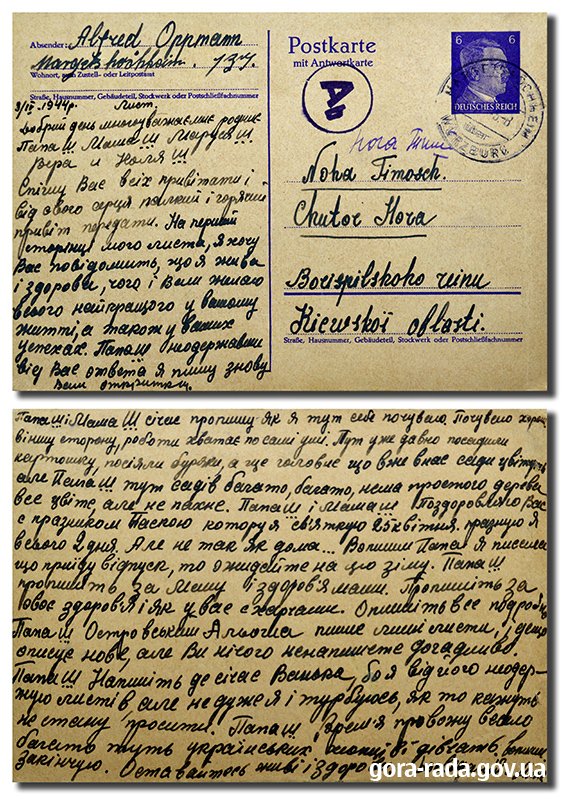 Absender: Alfred Oppmann
Margetshöchheim. 137.
Wohnort, auch Zustell- oder Leitpostamt
Straße, Hausnummer, Gebäudeteil, Stockwerk oder Postschließfachnummer
1944р. Лист.
Добрий день многоуважаєміє родителі
Папаш Мамаш Маруся
Віра и Коля
Спішу Вас всіх привітати і
від свого серця палкий і горячий
привіт передати. На першій
сторінці мого листа, я хочу
Вас повідомить, що я жива
і здорова, чого і Вам желаю
всього найкращого у вашому
житті, а також у ваших
успехах. Папаш неодержавши
від Вас ответа я пишу знову
Вам открытку.
Postkarte
mit Antwortkarte
6 6
DEUTSCHES REICH
WÜRZBURG
Гора
Noha Timosch.
Chutor Hora
Borispilskoho reinu
Kiewskoi oblasti.
Straße, Hausnummer, Gebäudeteil, Stockwerk oder Postschließfachnummer
Папаш і Мамаш січас пропишу як я тут себе почуваю. Почуваю хорошо
роботи хватає по самі уші. Тут уже давно посадили
картошку, посіяли буряки, а ще головне що вже в нас сади цвітуть
але Папаш тут садів багато, багато, нема простого дерева
все цвіте, але не пахне. Папаш і Мамаш Поздоровляю Вас
с празником Паскою которую святкую 25 квітня. празную я
всього 2 дня. Але не так як дома... Папаш я писала
що приїду відпуск, то ожидайте на цю зіму. Папаш
пропишіть за Маму здоров'я мами. Пропишіть за
своє здоров'я і як у вас с харчами. Опишіть все подробно
Папаш Островський Альоша пише мині листи, і дещо
описує нове, але Ви нічого ненапишете догадливо.
Папаш Напишіть де січас Ванька, бо я від його неодер-
жую листів але не дуже я і турбуюсь, як то кажуть
не стану просити. Папаш время провожу весело
багато тут українських і дівчат,
закінчую. Оставайтесь живі і здорові
gora-rada.gov.ua